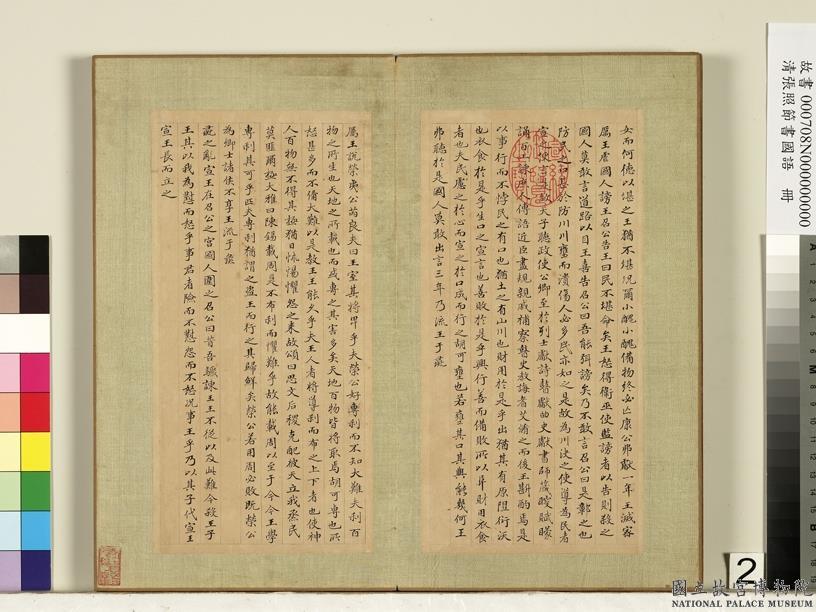 女而何德以堪之王猶不堪況爾小醜小醜備物終必亡康公弗獻一年王滅密
厲王虐國人謗王召公告王曰民不堪命矣王怒得衛巫使監謗者以告則殺之
國人莫敢言道路以目王喜告召公曰吾能弭謗矣乃不敢言召公曰是鄣之也
防民之口甚於防川川壅而潰傷人必多民亦如之是故為川決之使導為民者
宣之使言故天子聽政使公卿至於列士獻詩瞽獻曲史獻書師箴瞍賦矇
誦百工諫庶人傳語近臣盡規親戚補察瞽史教誨耆艾脩之而後王斟酌焉是
以事行而不悖民之有口也猶土之有山川也財用於是乎出猶其有原隰衍沃
也衣食於是乎生口之宣言也善敗於是乎興行善而備敗所以阜財用衣食
者也夫民慮之於心而宣之於口成而行之胡可壅也若壅其口其與能幾何王
弗聽於是國人莫敢出言三年乃流王于彘
厲王說榮夷公芮良夫曰王室其將卑乎夫榮公好專利而不知大難夫利百
物之所生也天地之所載也而或專之其害多矣天地百物皆將取焉胡可專也所
怒甚多而不備大難以是教王王能久乎夫王人者將導利而布之上下者也使神
人百物無不得其極猶日怵惕懼怨之來故頌曰思文后稷克配彼天立我烝民
莫匪爾極大雅曰陳錫載周是不布利而懼難乎故能載周以至于今今王學
專利其可乎匹夫專利猶謂之盜王而行之其歸鮮矣榮公若用周必敗既榮公
為卿士諸侯不享王流于彘
彘之亂宣王在召公之宮國人圍之召公曰昔吾驟諫王王不從以及此難今殺王子
王其以我為懟而怒乎事君者險而不懟怨而不怒況事王乎乃以其子代宣王
宣王長而立之
故書000708N000000000
清張照節書國語 冊
2
國立故宮博物院
NATIONAL PALACE MUSEUM